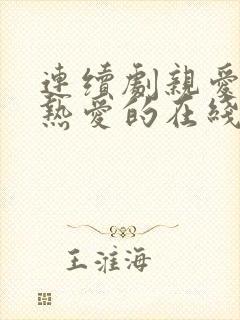 連續劇親愛
熱愛的在綫
王淮海